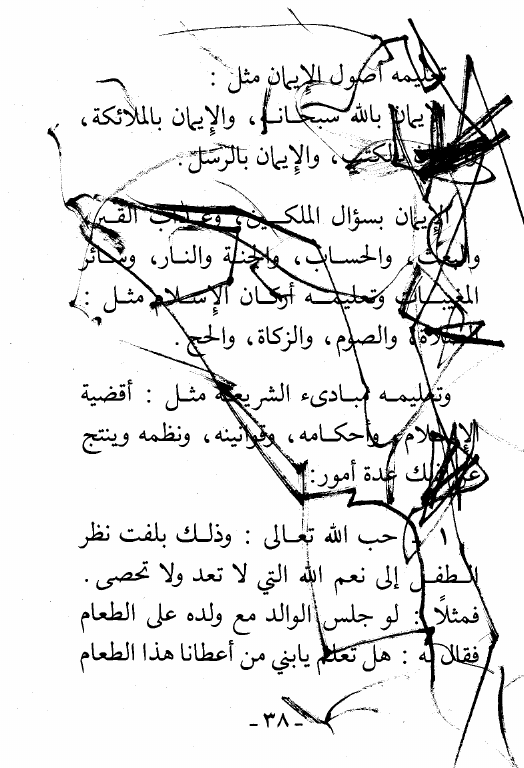 تعليمه أصول الإيمان مثل :
الإيمان بالله سبحانه، والإيمان بالملائكة،
بالكتب، والإيمان بالرسل.
الإيمان بسؤال الملكين، وعذاب القبر،
والبعث، والحساب، والجنة والنار، وسائر
المغيبات وتعليمه أركان الإسلام مثل :
الصلاة، والصوم، والزكاة، والحج.
وتعليمه مبادىء الشريعة مثل : أقضية
الإسلام وأحكامه، وقوانينه، ونظمه وينتج
عن ذلك عدة أمور:
١ - حب الله تعالى : وذلك بلفت نظر
الطفل إلى نعم الله التي لا تعد ولا تحصى.
فمثلًا : لو جلس الوالد مع ولده على الطعام
فقال له : هل تعلم يابني من أعطانا هذا الطعام
ـ ٣٨ ـ